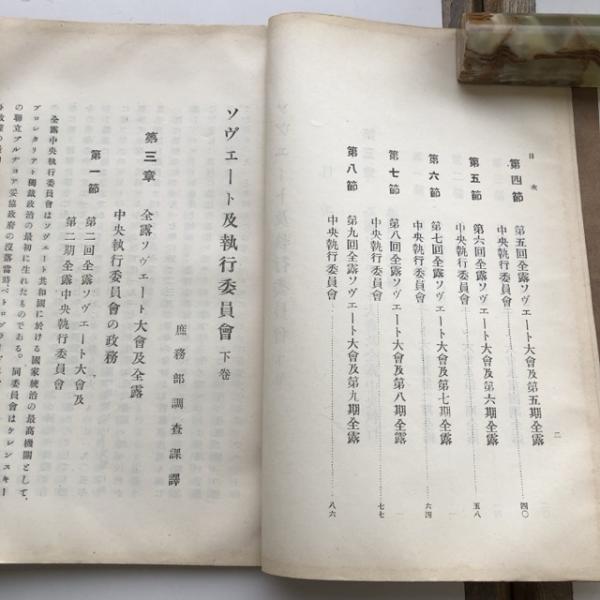 目次
第四節
第五回全露ソヴェート大會及第五期全露
中央執行委員會……四〇
第五節
第六回全露ソヴェート大會及第六期全露
中央執行委員會……五八
第六節
第七回全露ソヴェート大會及第七期全露
中央執行委員會……六四
第七節
第八回全露ソヴェート大會及第八期全露
中央執行委員會……七七
第八節
第九回全露ソヴェート大會及第九期全露
中央執行委員會……八六
二
ソヴェート及執行委員會 下卷
庶務部調査課譯
第三章 全露ソヴェート大會及全露
中央執行委員會の政務
第一節 第二回全露ソヴェート大會及
第二期全露中央執行委員會
全露中央執行委員會はソヴェート共和國に於ける國家統治の最高機關として、
プロレタリアト獨裁政治の最初に生れたものである。同委員會はケレンスキー
の聯立ブルヂョア妥協政府の沒落當時ペトログラード